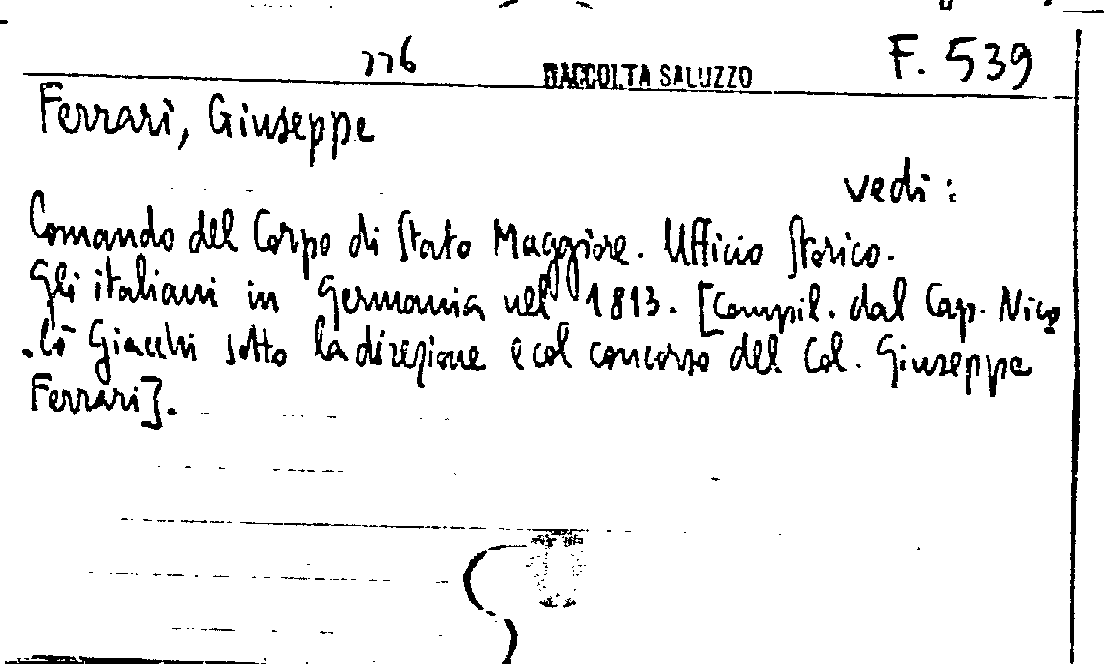 776 RACCOLTA SALUZZO F. 539
Ferrari, Giuseppe
vedi:
Comando del Corpo di Stato Maggiore. Ufficio Storico.
Gli italiani in Germania nel 1813. [Compil. dal Cap. Nico
-lò Giacchi sotto la direzione e col concorso del Col. Giuseppe
Ferrari].